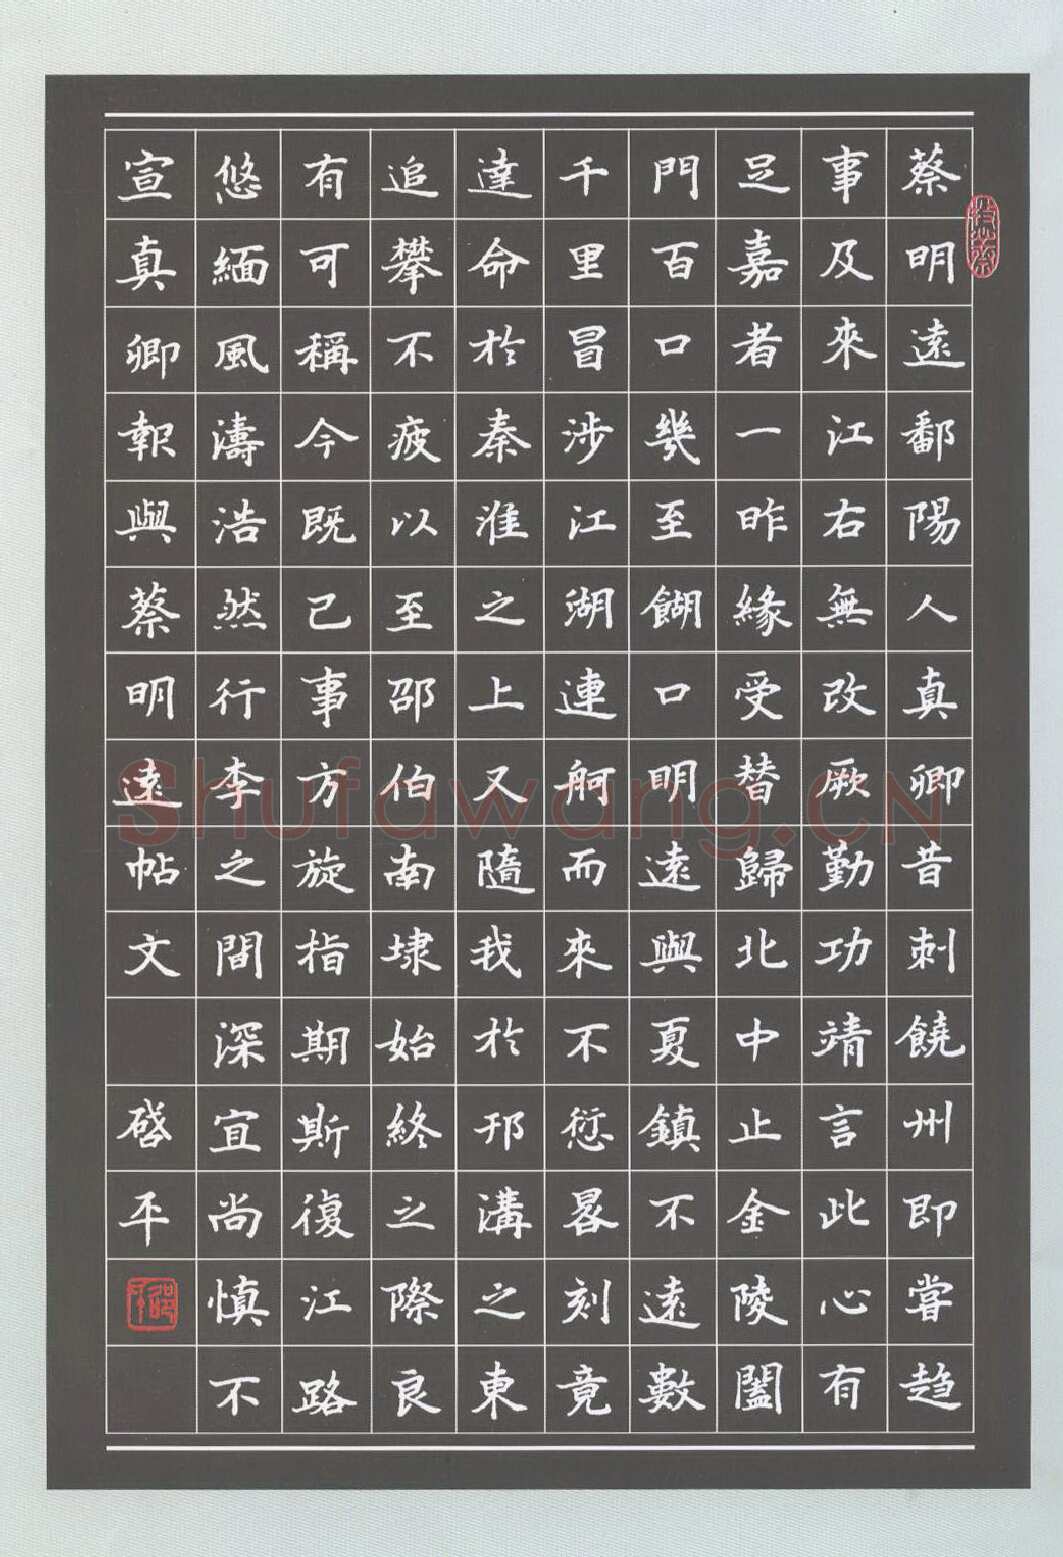 蔡明遠鄱陽人真卿昔刺饒州即嘗趋
事及來江右無改厥勤功靖言此心有
足嘉者一昨緣受替歸北中止金陵闔
門百口幾至餬口明遠與夏鎮不遠數
千里冒涉江湖連舸而來不愆晷刻竟
達命於秦淮之上又隨我於邗溝之東
追攀不疲以至邵伯南埭始終之際良
有可稱今既已事方旋指期斯復江路
悠緬風濤浩然行李之間深宜尚慎不
宣真卿報與蔡明遠帖文 啓平
Shufawang.CN